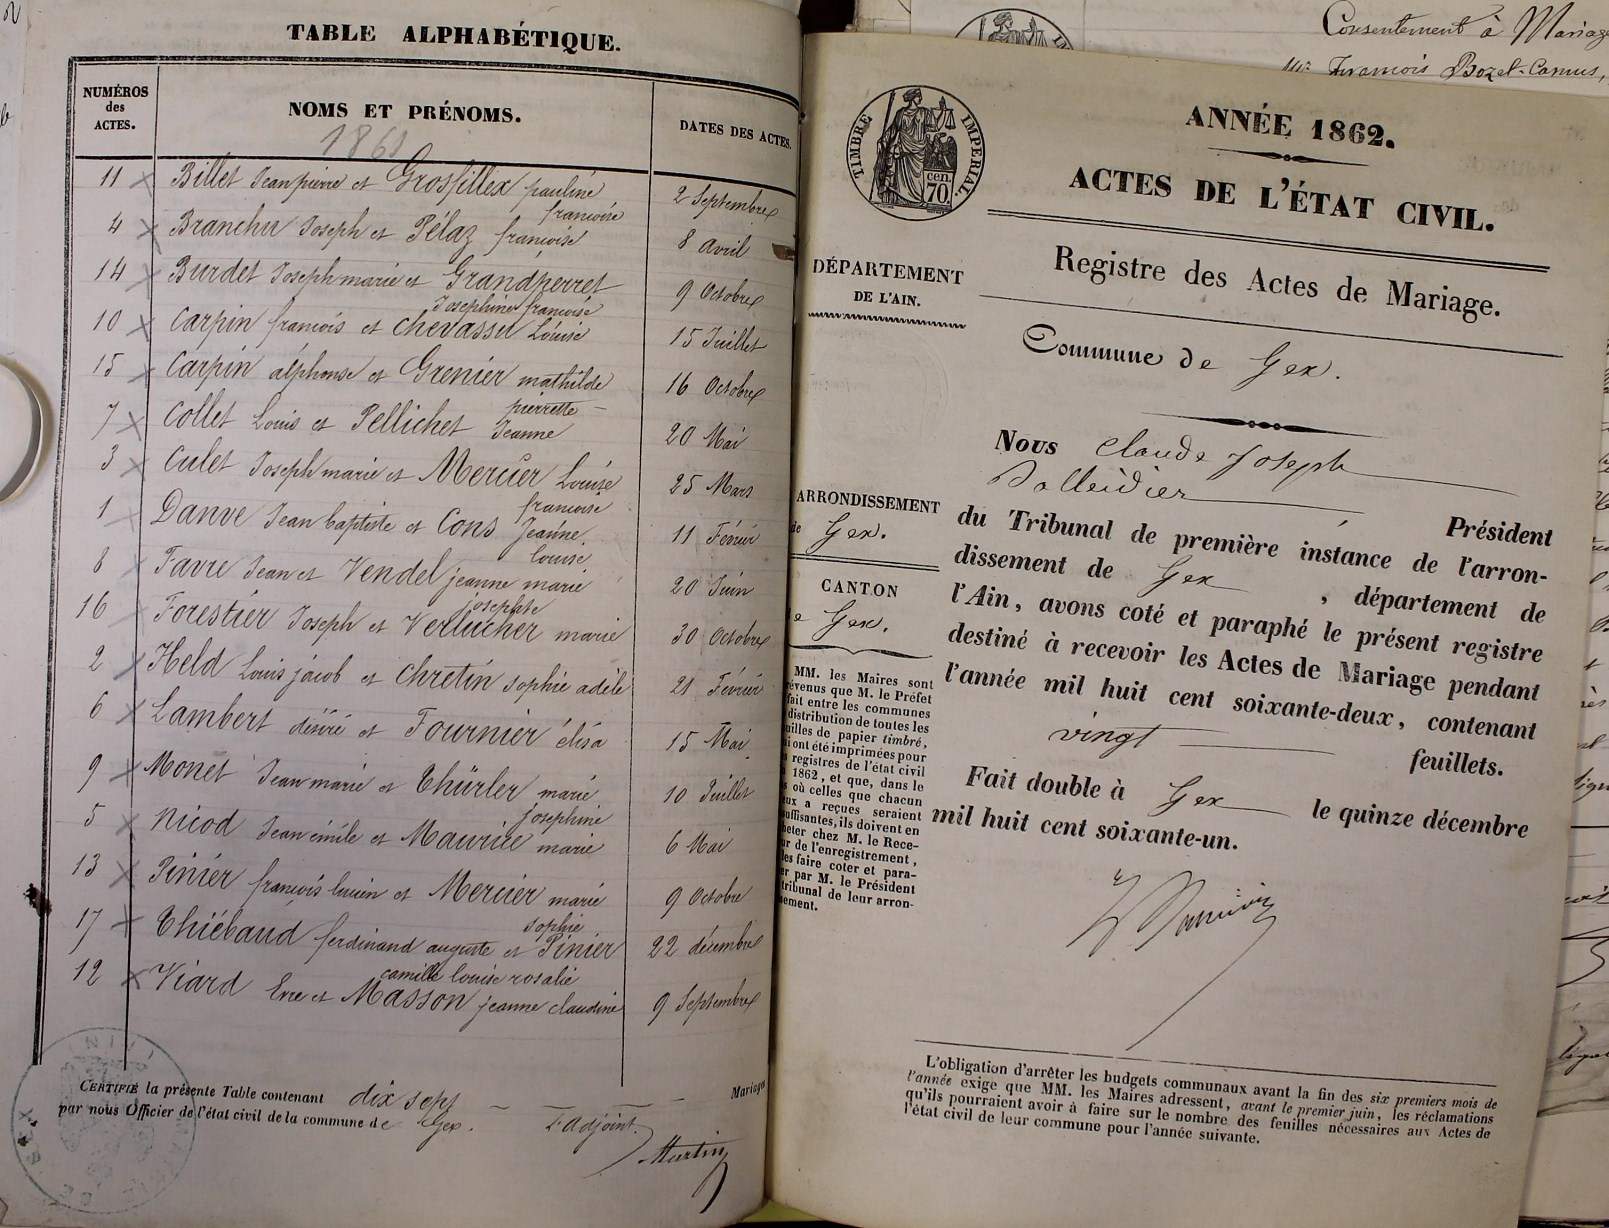 TABLE ALPHABÉTIQUE.
NUMÉROS
des
ACTES.
NOMS ET PRÉNOMS.
DATES DES ACTES.
1861
11 Billet Jean pierre et Grosfillex pauline 2 Septembre
françoise
4 Branchu Joseph et Pélaz françoise 8 avril
14 Burdet Joseph marie et Grandperret 9 Octobre
Josephine françoise
10 Carpin françois et Chevassu Louise 15 Juillet
15 Carpin alphonse et Grenier mathilde 16 Octobre
pierrette
7 Collet Louis et Pellichet Jeanne 20 Mai
3 Culet Joseph marie et Mercier Louise 25 Mars
françoise
1 Danve Jean baptiste et Cons Jeanne 11 Février
louise
8 Favre Jean et Vendel jeanne marie 20 Juin
josephte
16 Forestier Joseph et Verlucher marie 30 Octobre
2 Held Louis jacob et Chretin sophie adèle 21 Février
6 Lambert désiré et Fournier élisa 15 Mai
9 Monet Jean marie et Thürler marie 10 Juillet
josephine
5 Nicod Jean émile et Maurice marie 6 Mai
13 Pinier françois lucien et Mercier marie 9 Octobre
sophie
17 Thiébaud ferdinand auguste et Pinier 22 décembre
camille louise rosalie
12 Viard Ene et Masson jeanne claudine 9 Septembre
CERTIFIÉ la présente Table contenant dix sept Mariages
par nous Officier de l'état civil de la commune de Gex. L'adjoint.
Martin
Consentement à Mariage
François Bozet-Camus,
TIMBRE IMPERIAL.
cen.
70.
ANNÉE 1862.
ACTES DE L'ÉTAT CIVIL.
DÉPARTEMENT
DE L'AIN.
Registre des Actes de Mariage.
Commune de Gex.
ARRONDISSEMENT
de Gex.
CANTON
e Gex.
MM. les Maires sont
révenus que M. le Préfet
fait entre les communes
distribution de toutes les
uilles de papier timbré,
i ont été imprimées pour
registres de l'état civil
1862, et que, dans le
s où celles que chacun
eux a reçues seraient
uffisantes, ils doivent en
heter chez M. le Rece-
ur de l'enregistrement,
les faire coter et para-
er par M. le Président
tribunal de leur arron-
sement.
Nous Claude Joseph
Président
du Tribunal de première instance de l'arron-
dissement de Gex, département de
l'Ain, avons coté et paraphé le présent registre
destiné à recevoir les Actes de Mariage pendant
l'année mil huit cent soixante-deux, contenant
vingt feuillets.
Fait double à Gex le quinze décembre
mil huit cent soixante-un.
L'obligation d'arrêter les budgets communaux avant la fin des six premiers mois de
l'année exige que MM. les Maires adressent, avant le premier juin, les réclamations
qu'ils pourraient avoir à faire sur le nombre des feuilles nécessaires aux Actes de
l'état civil de leur commune pour l'année suivante.